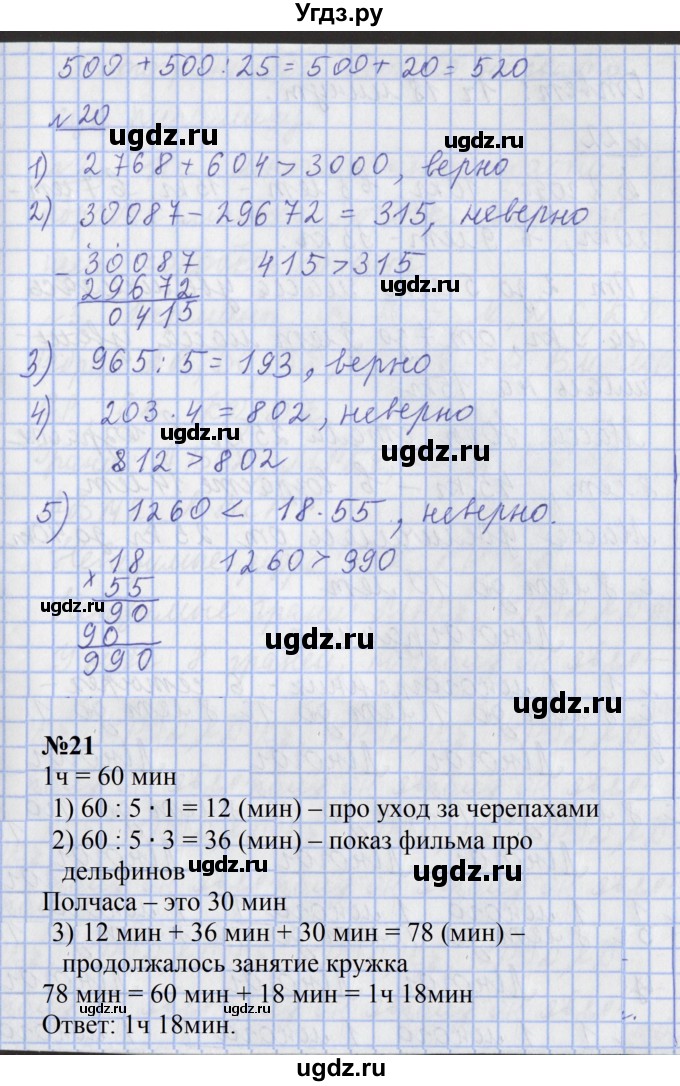 Угдз.ру
500 + 500 : 25 = 500 + 20 = 520
№20
ugdz.ru ugdz.ru
1) 2768 + 604 > 3000, верно
2) 30087 - 29672 = 315, неверно
- 30087 415 > 315
29672 ugdz.ru
0415
3) 965 : 5 = 193, верно
4) 203 · 4 = 802, неверно
ugdz.ru ugdz.ru
812 > 802
5) 1260 < 18 · 55, неверно.
18 1260 > 990
× 55
ugdz.ru 90 ugdz.ru
90
990
ugdz.ru
№21
1ч = 60 мин
1) 60 : 5 · 1 = 12 (мин) – про уход за черепахами
2) 60 : 5 · 3 = 36 (мин) – показ фильма про
дельфинов ugdz.ru ugdz.ru
Полчаса – это 30 мин
3) 12 мин + 36 мин + 30 мин = 78 (мин) –
продолжалось занятие кружка
78 мин = 60 мин + 18 мин = 1ч 18мин
ugdz.ru ugdz.ru
Ответ: 1ч 18мин.
ugdz.ru